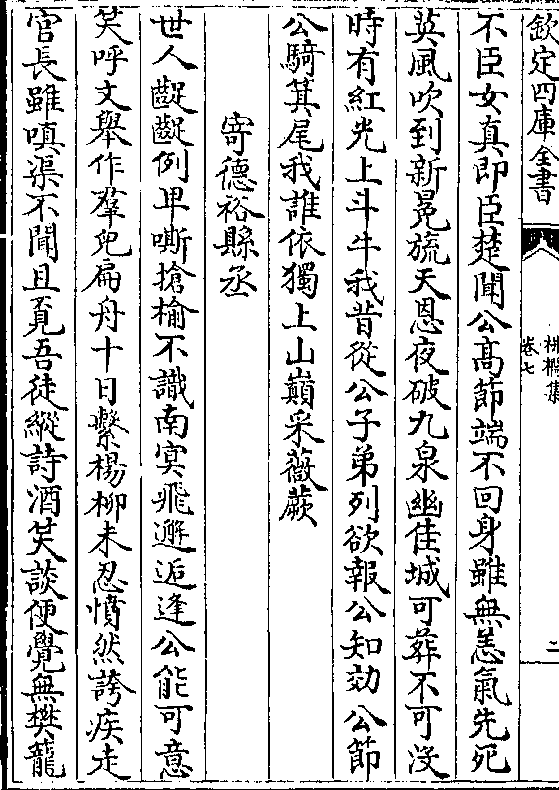 欽定四庫全書
栟櫚集
卷七
二
不臣女真即臣楚聞公高節端不回身雖無恙氣先死
英風吹到新冕旒天恩夜破九泉幽佳城可葬不可沒
時有紅光上斗牛我昔從公子弟列欲報公知効公節
公騎箕尾我誰依獨上山巔采薇蕨
寄德裕縣丞
世人齪齪例卑嘶搶榆不識南冥飛邂逅逢公能可意
笑呼文舉作羣兒扁舟十日繫楊柳未忍憤然誇疾走
官長雖嗔渠不聞且覓吾徒縱詩酒笑談便覺無樊籠